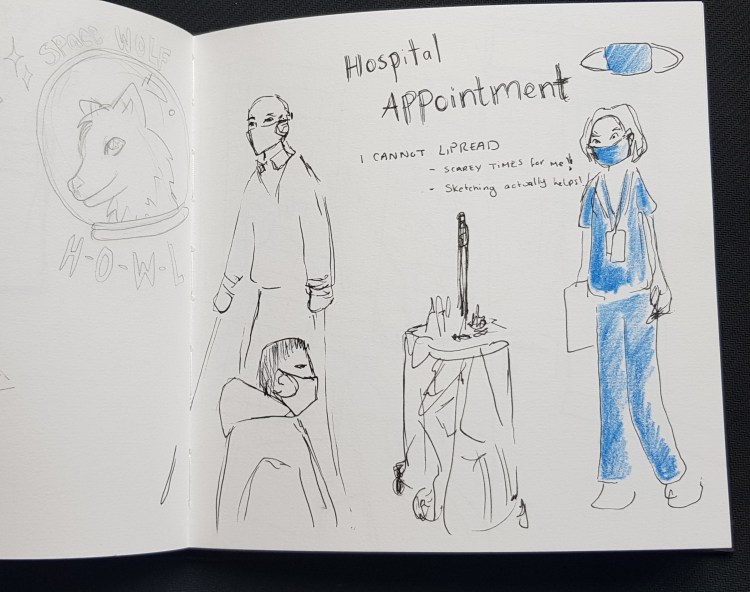 SPACE WOLF
H-O-W-L
Hospital
APPointment
I CANNOT LIPREAD
- SCAREY TIMES for me!
- Sketching actually helps!